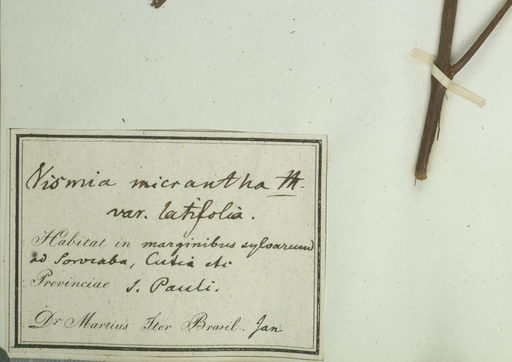 Vismia micrantha M.
var. latifolia.
Habitat in marginibus sylvarum
ad Sorocaba, Cutia etc
Provinciae S. Pauli.
Dr Martius Iter Brasil. Jan